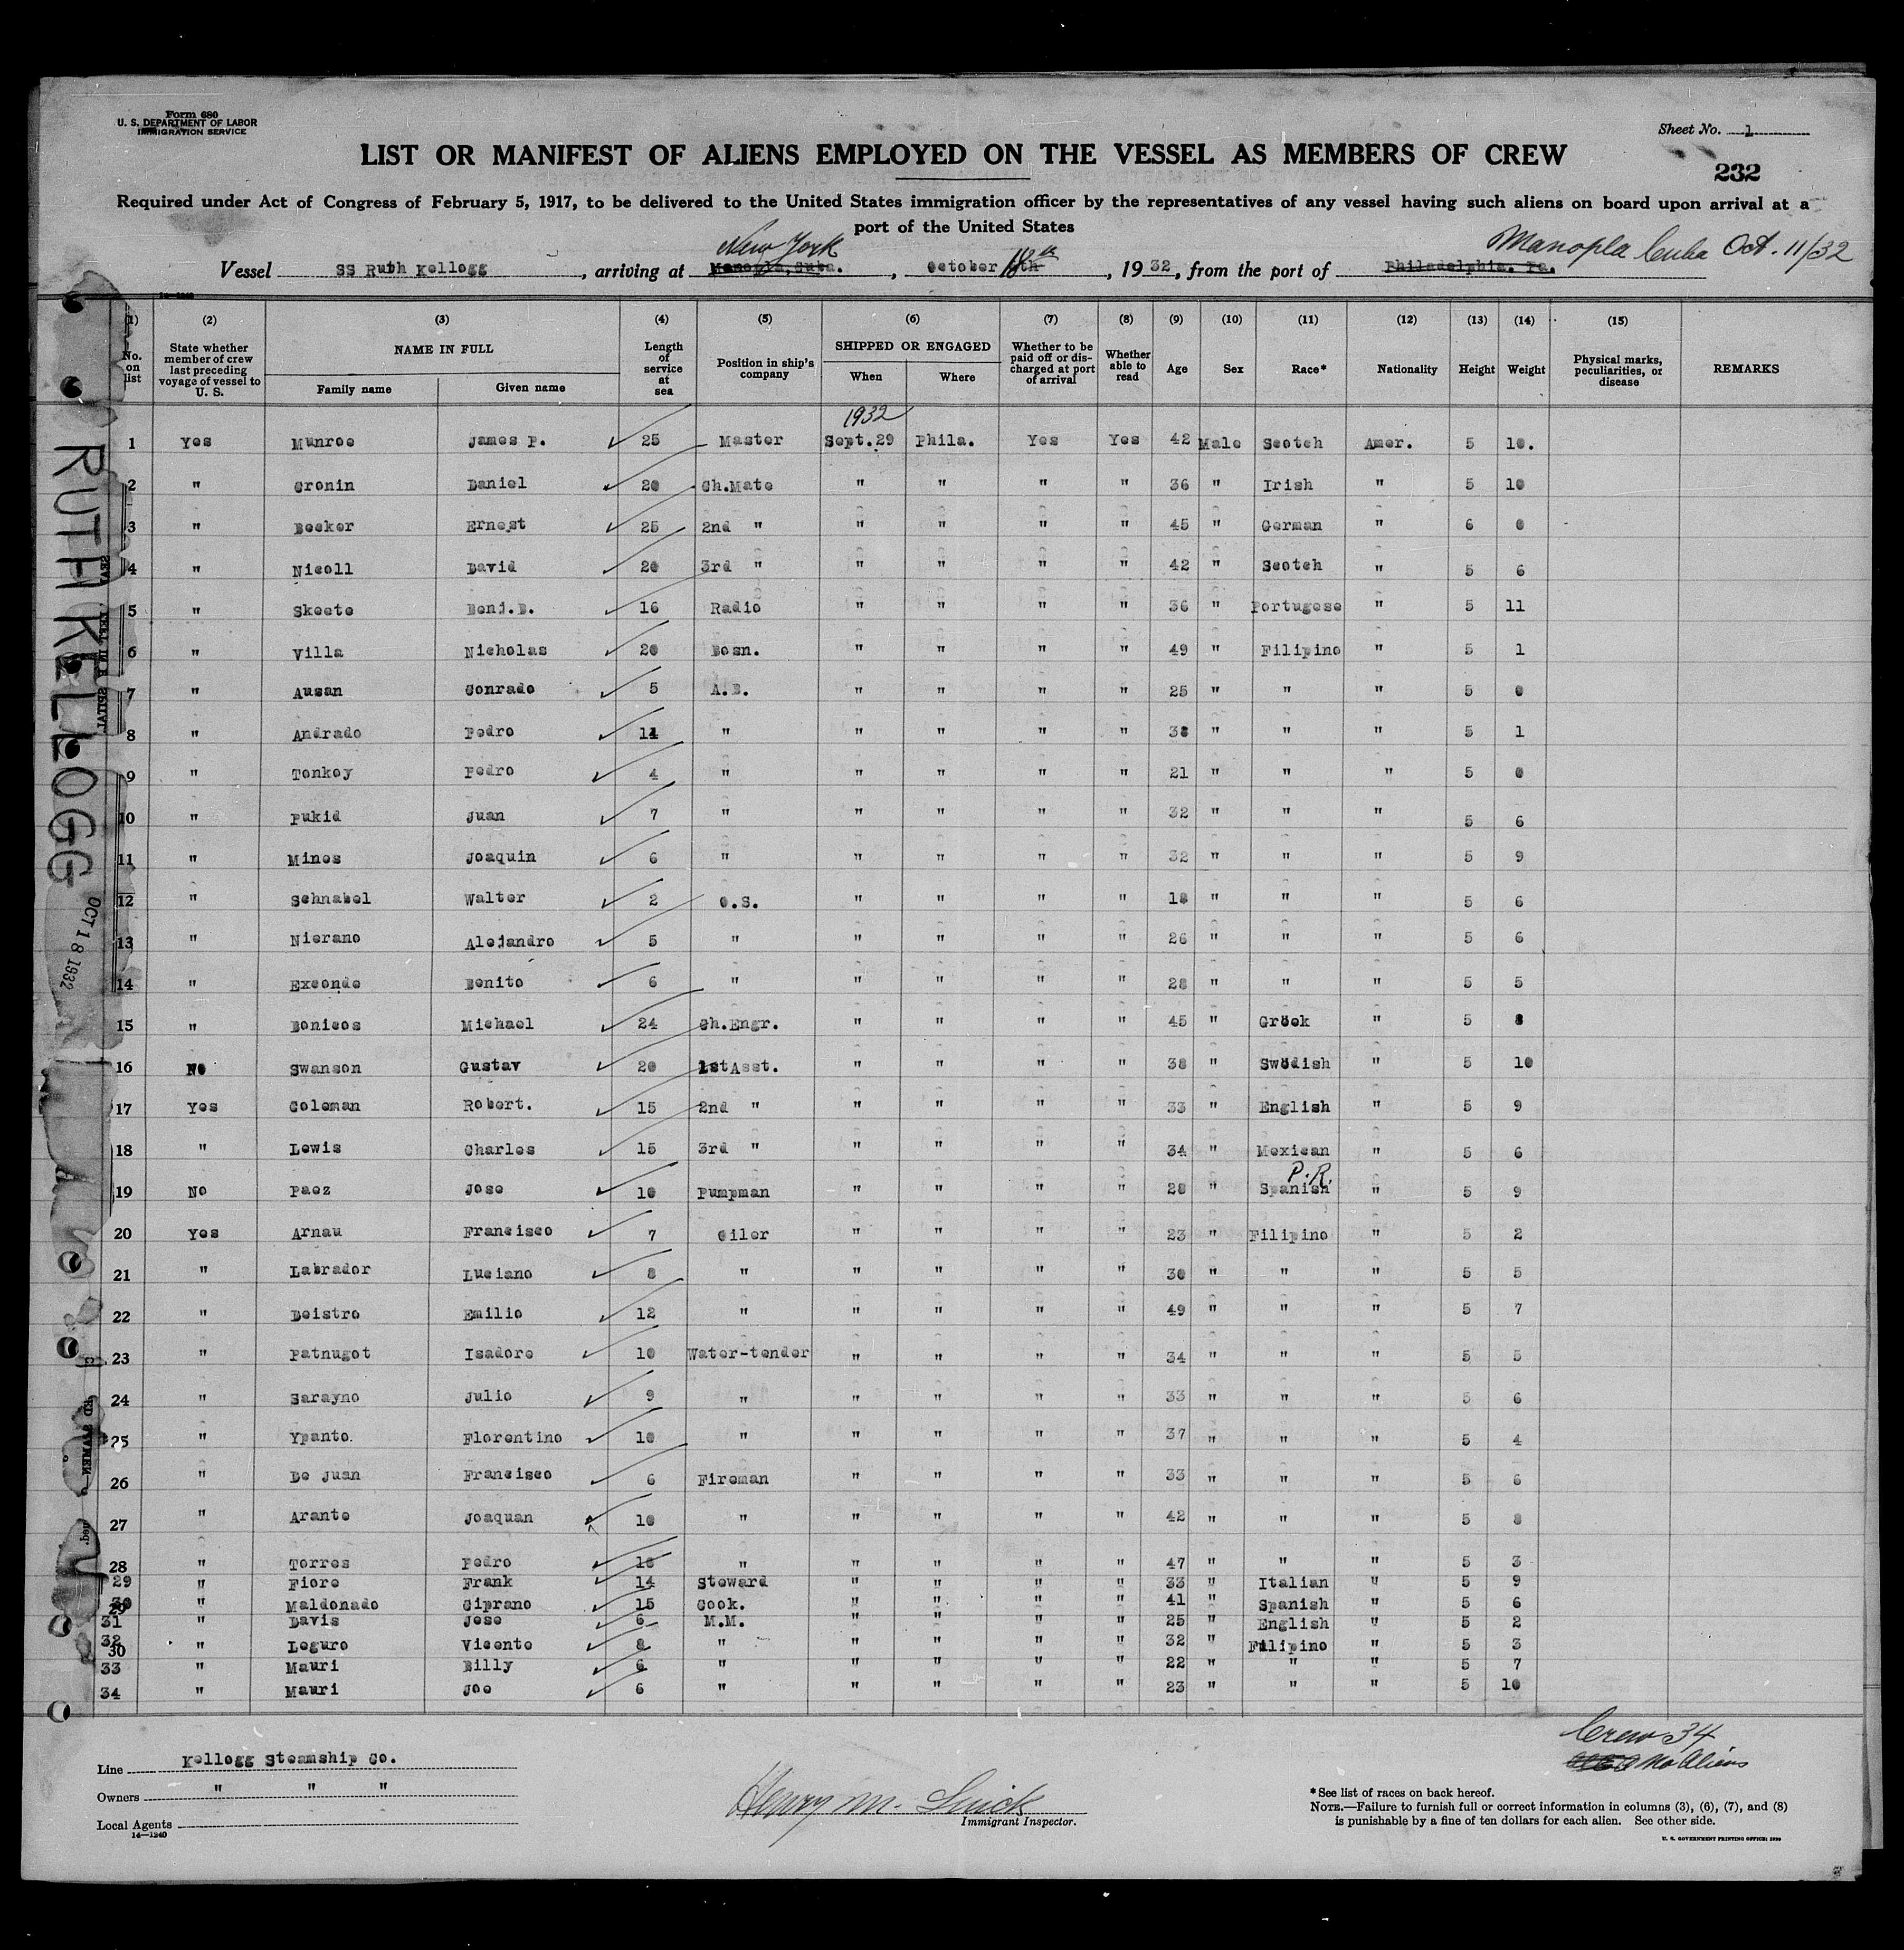 Form 680
U. S. DEPARTMENT OF LABOR
IMMIGRATION SERVICE
Sheet No. 1
LIST OR MANIFEST OF ALIENS EMPLOYED ON THE VESSEL AS MEMBERS OF CREW
232
Required under Act of Congress of February 5, 1917, to be delivered to the United States immigration officer by the representatives of any vessel having such aliens on board upon arrival at a
port of the United States
New York Manopla Cuba Oct. 11/32
Vessel SS Ruth Kellogg, arriving at Manopla, Cuba., October 18th, 1932, from the port of Philadelphia. Pa.
14-1240
(1) (2) (3) (4) (5) (6) (7) (8) (9) (10) (11) (12) (13) (14) (15)
No. on list State whether member of crew last preceding voyage of vessel to U. S. NAME IN FULL Family name Given name Length of service at sea Position in ship's company SHIPPED OR ENGAGED When Where Whether to be paid off or discharged at port of arrival Whether able to read Age Sex Race* Nationality Height Weight Physical marks, peculiarities, or disease REMARKS
1932
1 Yes Munroe James P. 25 Master Sept.29 Phila. Yes Yes 42 Male Scotch Amer. 5 10.
2 " Cronin Daniel 20 Ch.Mate " " " " 36 " Irish " 5 10
3 " Becker Ernest 25 2nd " " " " " 45 " German " 6 0
4 " Nicoll David 20 3rd " " " " " 42 " Scotch " 5 6
5 " Skeete Benj.B. 16 Radio " " " " 36 " Portugese " 5 11
6 " Villa Nicholas 20 Bosn. " " " " 49 " Filipino " 5 1
7 " Ausan Conrado 5 A.B. " " " " 25 " " " 5 0
8 " Andrado Pedro 14 " " " " " 38 " " " 5 1
9 " Tonkoy Pedro 4 " " " " " 21 " " " 5 0
10 " Pukid Juan 7 " " " " " 32 " " " 5 6
11 " Minos Joaquin 6 " " " " " 32 " " " 5 9
12 " Schnabel Walter 2 O.S. " " " " 18 " " " 5 6
13 " Nierano Alejandro 5 " " " " " 26 " " " 5 6
14 " Exconde Benito 6 " " " " " 28 " " " 5 5
15 " Bonicos Michael 24 Ch.Engr. " " " " 45 " Greek " 5 8
16 No Swanson Gustav 20 1stAsst. " " " " 38 " Swedish " 5 10
17 Yes Coleman Robert. 15 2nd " " " " " 33 " English " 5 9
18 " Lewis Charles 15 3rd " " " " " 34 " Mexican " 5 6
P.R.
19 No Paez Jose 10 Pumpman " " " " 28 " Spanish " 5 9
20 Yes Arnau Francisco 7 Oiler " " " " 23 " Filipino " 5 2
21 " Labrador Luciano 8 " " " " " 30 " " " 5 5
22 " Deistro Emilio 12 " " " " " 49 " " " 5 7
23 " Patnugot Isadore 10 Water-tender " " " " 34 " " " 5 5
24 " Sarayno Julio 9 " " " " " 33 " " " 5 6
25 " Ypanto. Florentino 10 " " " " " 37 " " " 5 4
26 " De Juan Francisco 6 Fireman " " " " 33 " " " 5 6
27 " Arante Joaquan 10 " " " " " 42 " " " 5 8
28 " Torres Pedro 10 " " " " " 47 " " " 5 3
29 " Fiore Frank 14 Steward " " " " 33 " Italian " 5 9
30 29 " Maldonado Ciprano 15 Cook. " " " " 41 " Spanish " 5 6
31 " Davis Jose 6 M.M. " " " " 25 " English " 5 2
32 30 " Leguro Vicente 8 " " " " " 32 " Filipino " 5 3
33 " Mauri Billy 6 " " " " " 22 " " " 5 7
34 " Mauri Joe 6 " " " " " 23 " " " 5 10
RUTH KELLOGG
OCT 18 1932
Crew 34
No Aliens
Line Kellogg Steamship Co.
Owners " " "
Local Agents
14-1240
Henry M. Luick
Immigrant Inspector.
*See list of races on back hereof.
NOTE.—Failure to furnish full or correct information in columns (3), (6), (7), and (8)
is punishable by a fine of ten dollars for each alien. See other side.
U. S. GOVERNMENT PRINTING OFFICE: 1930